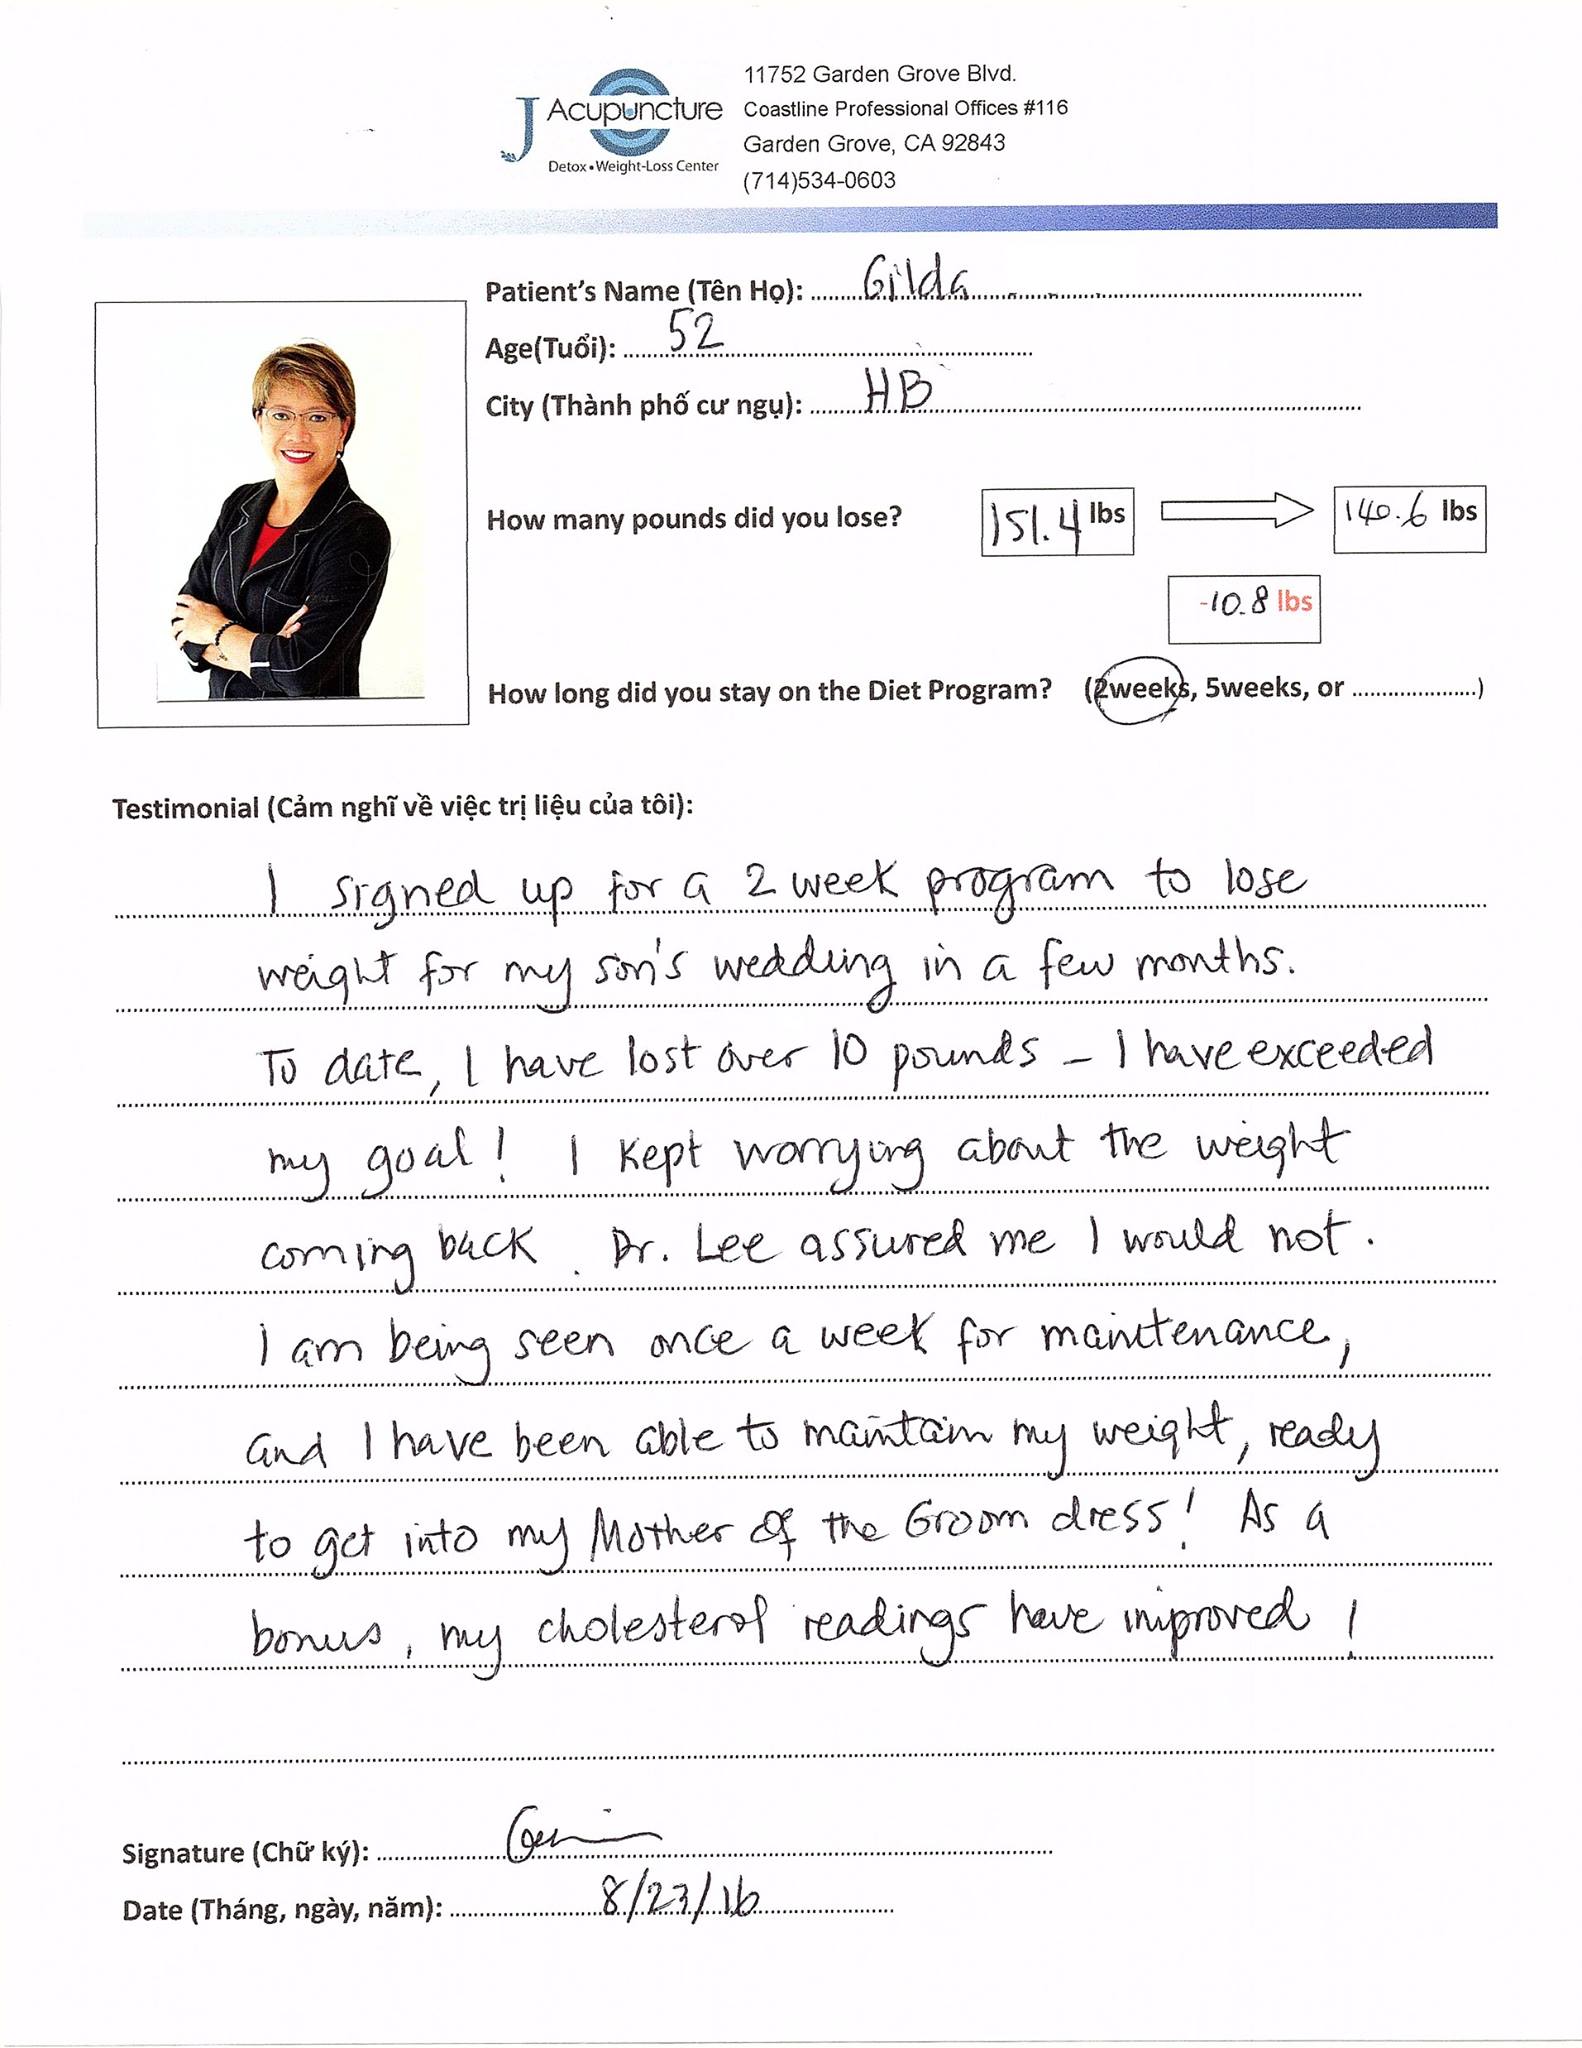 J Acupuncture
Detox • Weight-Loss Center
11752 Garden Grove Blvd.
Coastline Professional Offices #116
Garden Grove, CA 92843
(714)534-0603
Patient's Name (Tên Họ): Gilda
Age(Tuổi): 52
City (Thành phố cư ngụ): HB
How many pounds did you lose? 151.4 lbs 140.6 lbs
-10.8 lbs
How long did you stay on the Diet Program? (2weeks, 5weeks, or ....................)
Testimonial (Cảm nghĩ về việc trị liệu của tôi):
I signed up for a 2 week program to lose
weight for my son's wedding in a few months.
To date, I have lost over 10 pounds – I have exceeded
my goal! I kept worrying about the weight
coming back. Dr. Lee assured me I would not.
I am being seen once a week for maintenance,
and I have been able to maintain my weight, ready
to get into my Mother of the Groom dress! As a
bonus, my cholesterol readings have improved!
Signature (Chữ ký):
Date (Tháng, ngày, năm): 8/23/16